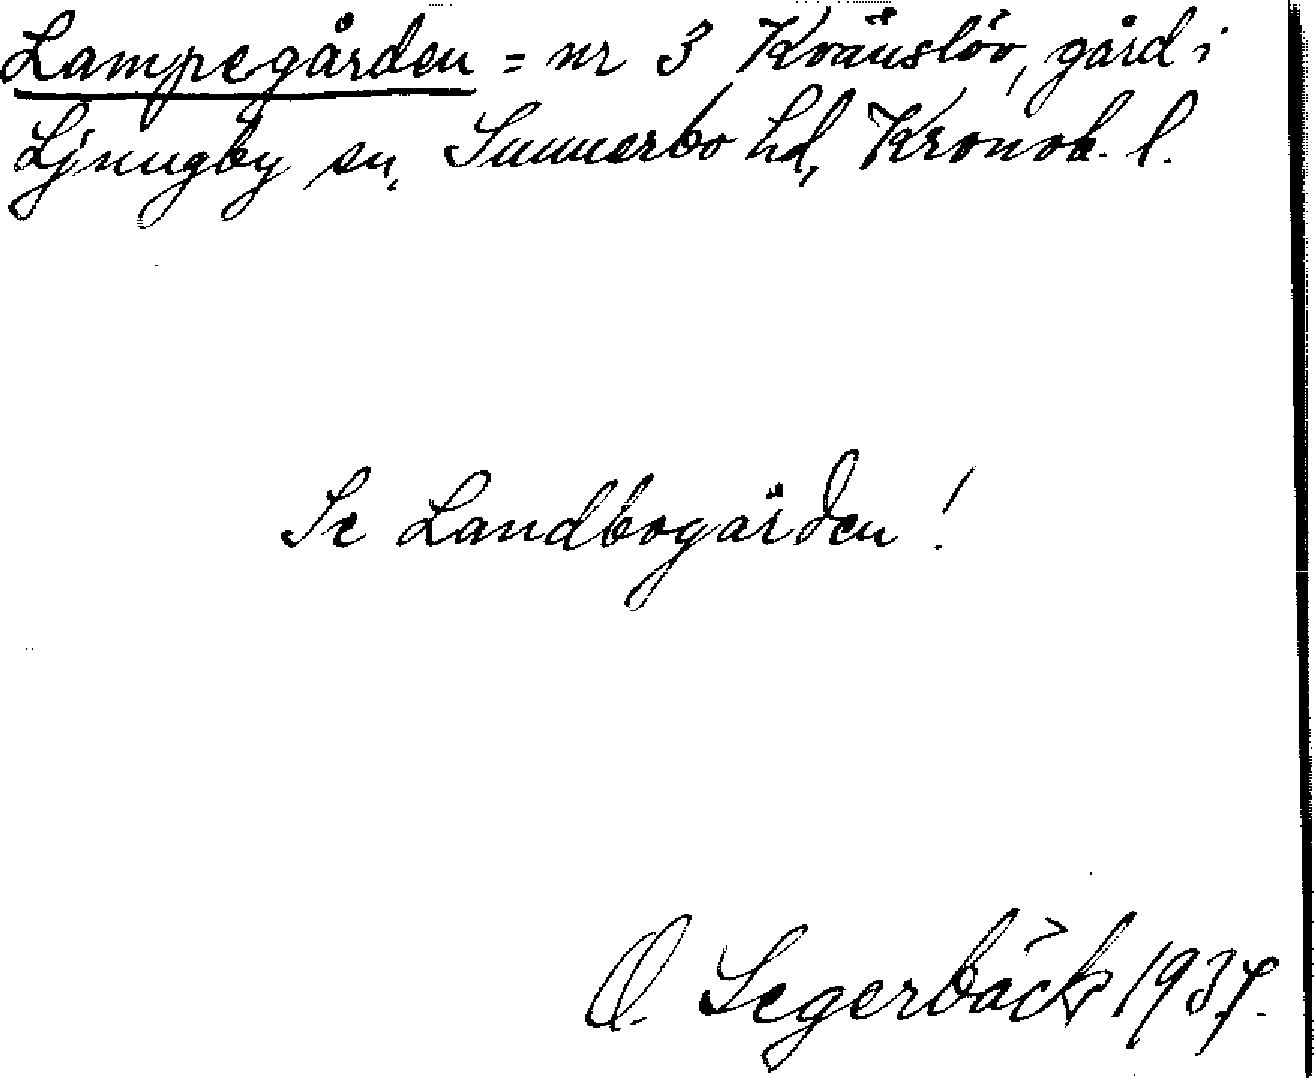 Lampegården = nr 3 Kvänslöv, gård i
Ljungby sn, Sunnerbo hd, Kronob. l.
Se Landbogården!
O. Segerbäck 1937.